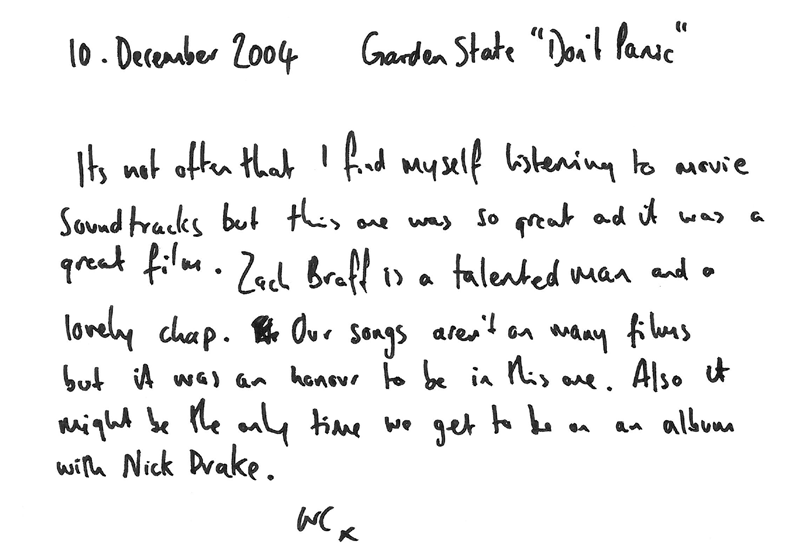 10. December 2004 Garden State "Don't Panic"
Its not often that I find myself listening to movie
Soundtracks but this one was so great and it was a
great film. Zach Braff is a talented man and a
lovely chap. Our songs aren't on many films
but it was an honour to be in this one. Also it
might be the only time we get to be on an album
with Nick Drake.
WC x